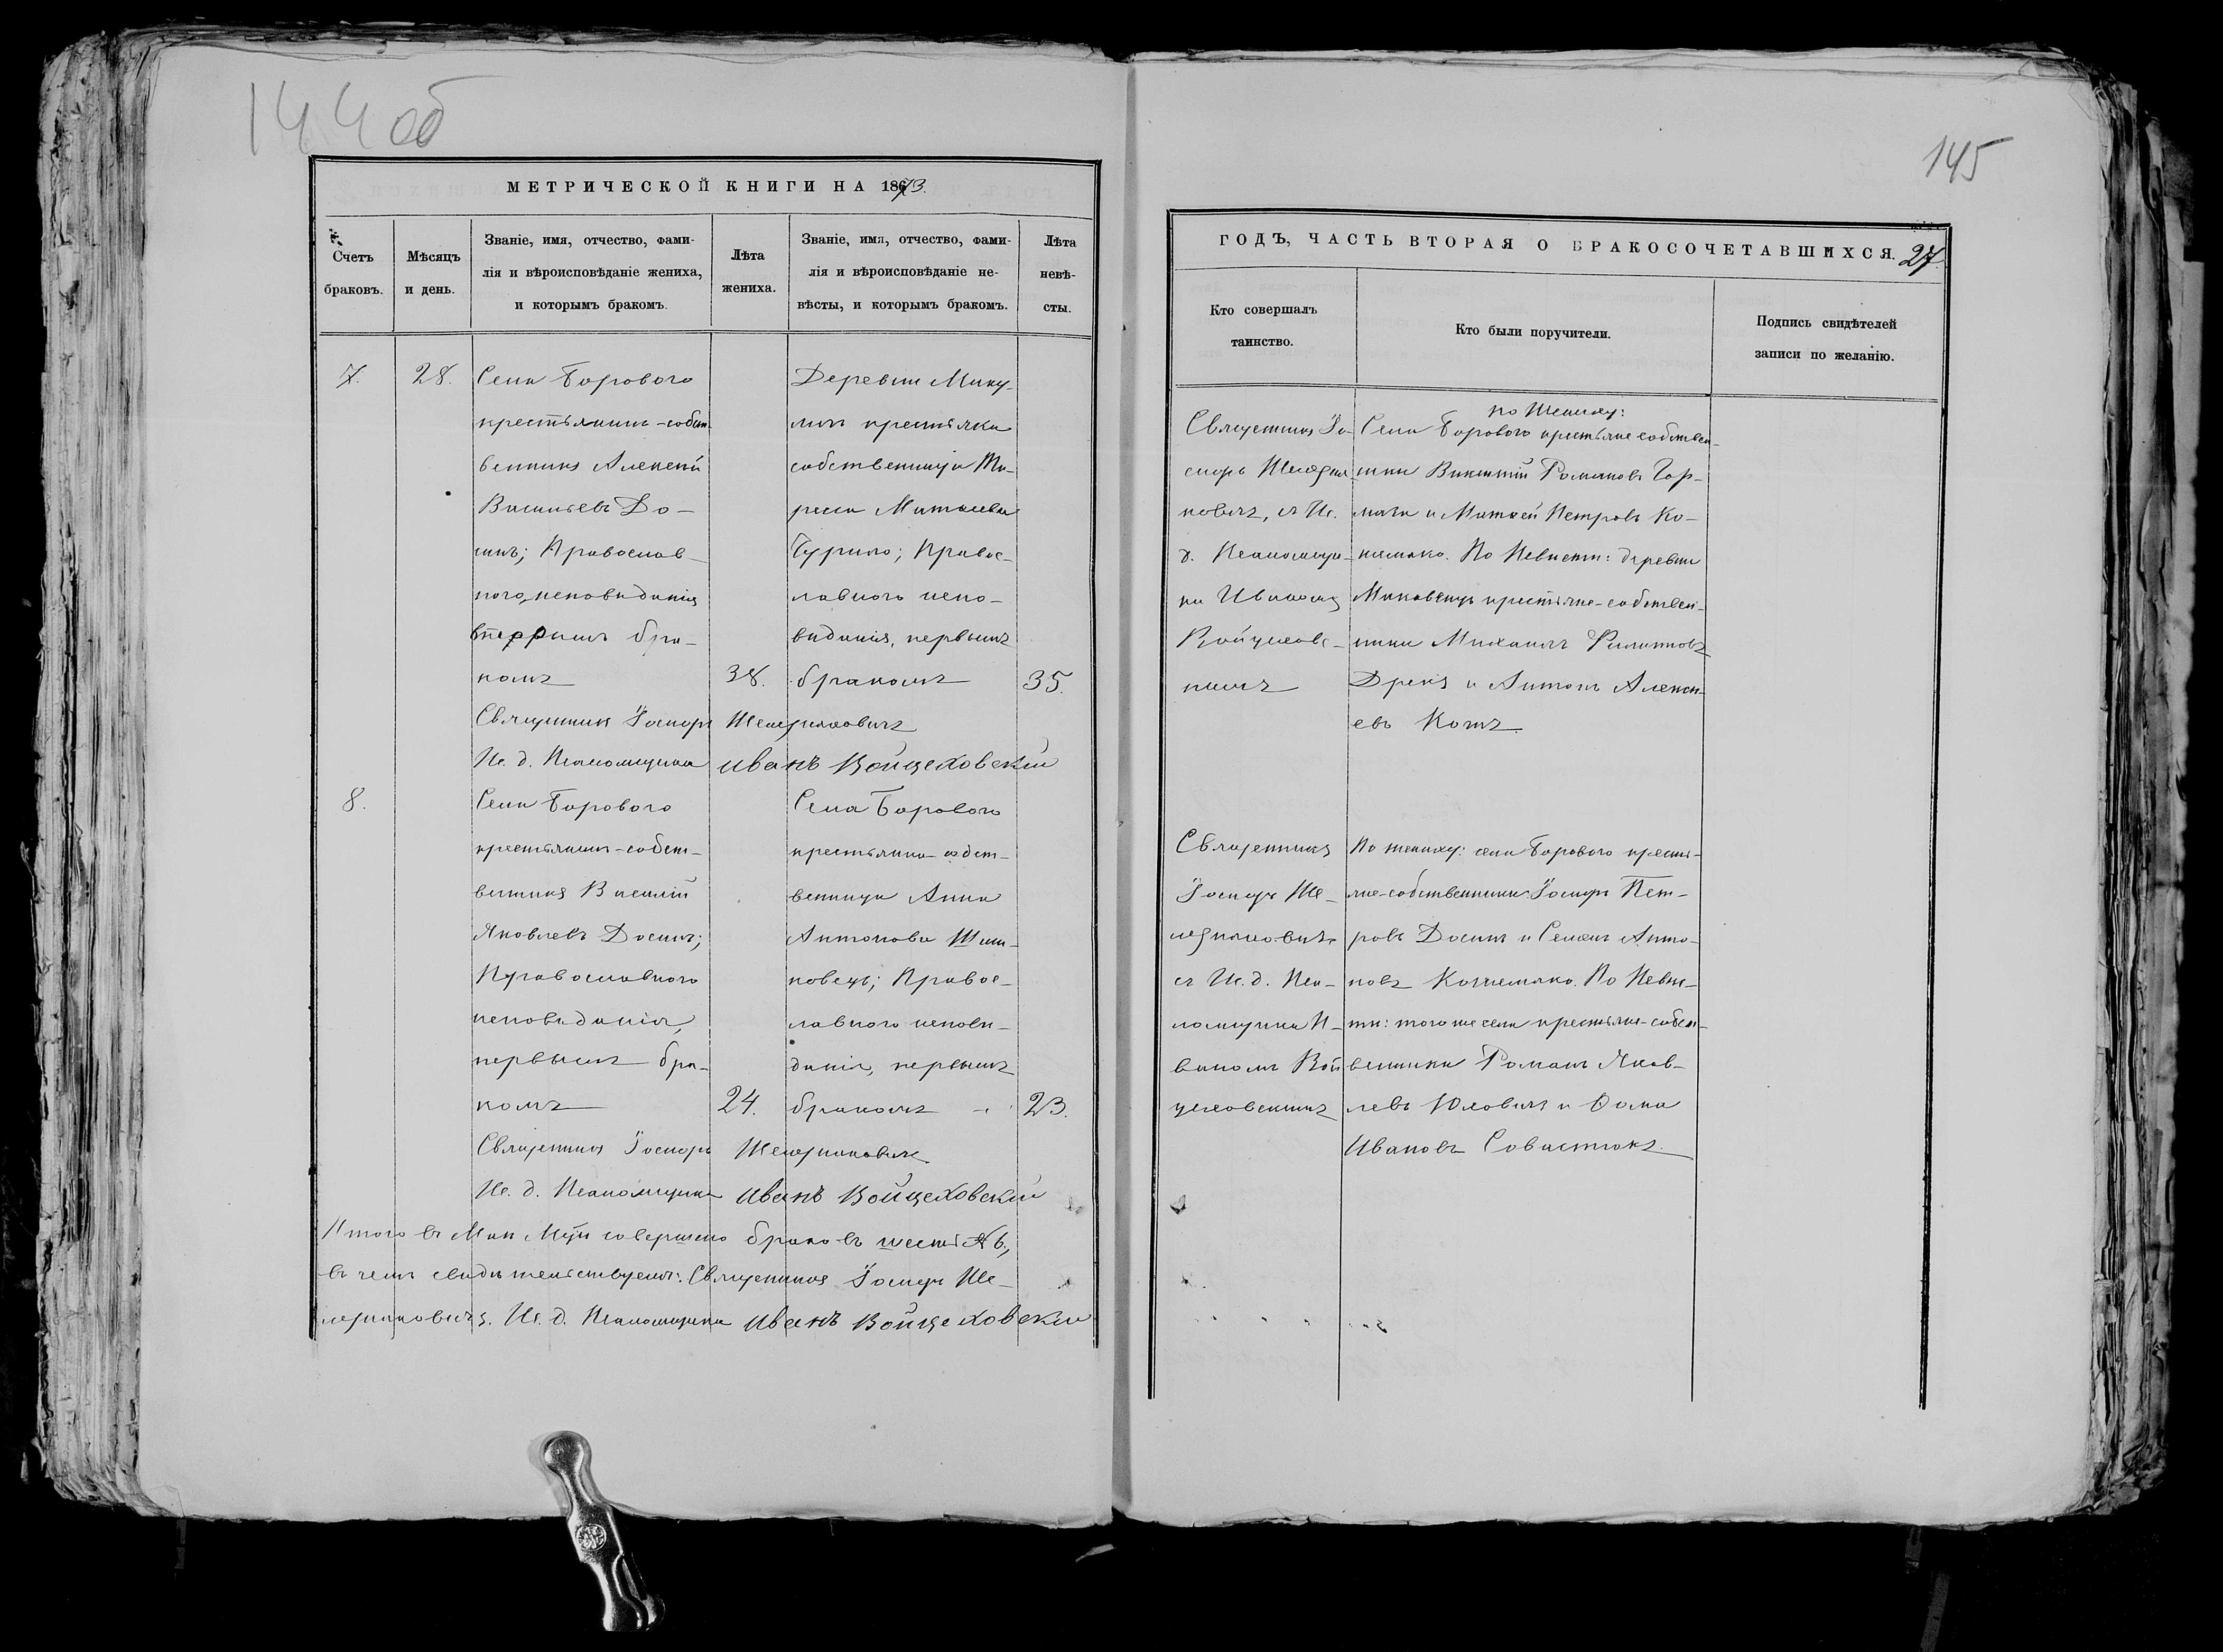 144 об
МЕТРИЧЕСКОЙ КНИГИ НА 1873.
Счетъ браковъ.
Мѣсяцъ и день.
Званіе, имя, отчество, фами-
лія и вѣроисповѣданіе жениха,
и которымъ бракомъ.
Лѣта жениха.
Званіе, имя, отчество, фами-
лія и вѣроисповѣданіе не-
вѣсты, и которымъ бракомъ.
Лѣта
невѣ-
сты.
7.
28.
Села Борового
крестьянинъ-собст
венникъ Алексѣй
Васильевъ До-
синъ; Православ-
ного исповѣданія
бра-
комъ
38.
Деревни Мику-
личъ крестьянка
собственница Ма-
Матвеева
Чурило; Правос-
лавного испо-
вѣданія, первымъ
бракомъ
35.
Священникъ Іосифъ
И. д. Псаломщика Иванъ Войцеховскій
8.
Села Борового
крестьянинъ-собст-
венникъ Василій
Яковлевъ Досинъ;
Православного
исповѣданія,
первымъ бра-
комъ
24.
Села Борового
крестьянка-собст-
венница Анна
Антонова Шим-
ковецъ; Правос-
лавного исповѣ-
данія, первымъ
бракомъ
23.
Священникъ Іосифъ
И. д. Псаломщика Иванъ Войцеховскій
Итого въ Маи Мцѣ совершено браковъ шесть 6.,
въ чемъ свидѣтельствуемъ: Священникъ Іосифъ
И. д. Псаломщика Иванъ Войцеховскій
145
ГОДЪ, ЧАСТЬ ВТОРАЯ О БРАКОСОЧЕТАВШИХСЯ. 27
Кто совершалъ
таинство.
Кто были поручители.
Подпись свидѣтелей
записи по желанію.
Священникъ Іо-
сифъ
съ И.
д. Псаломщи-
ка Иваномъ
Войцеховс-
кимъ
по Жениху:
Села Борового крестьяне собствен-
ники Викентій Романовъ Гор-
и Матвей Петровъ Ко-
жемяко. По Невѣсти: деревни
крестьяне-собствен-
ники Михаилъ Филиповъ
и Антонъ Алексѣ-
евъ Котъ
Священникъ
Іосифъ
съ И. д. Пса-
ломщика И-
ваномъ Вой
цеховскимъ
По жениху: села Борового кресть-
яне-собственники Іосифъ Пет-
ровъ Досинъ и Семенъ Анто-
новъ Кожемяко. По Невѣс-
ти: того же села крестьяне-собст-
венники Романъ Яков-
левъ Юховичъ и Ѳома
Ивановъ Совастюкъ.